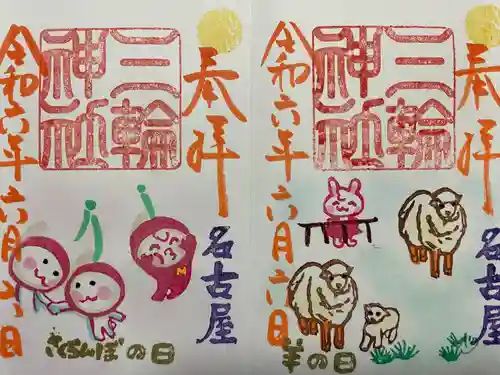 奉拝
三輪神社
名古屋
令和六年六月六日
さくらんぼの日
奉拝
三輪神社
名古屋
令和六年六月六日
羊の日